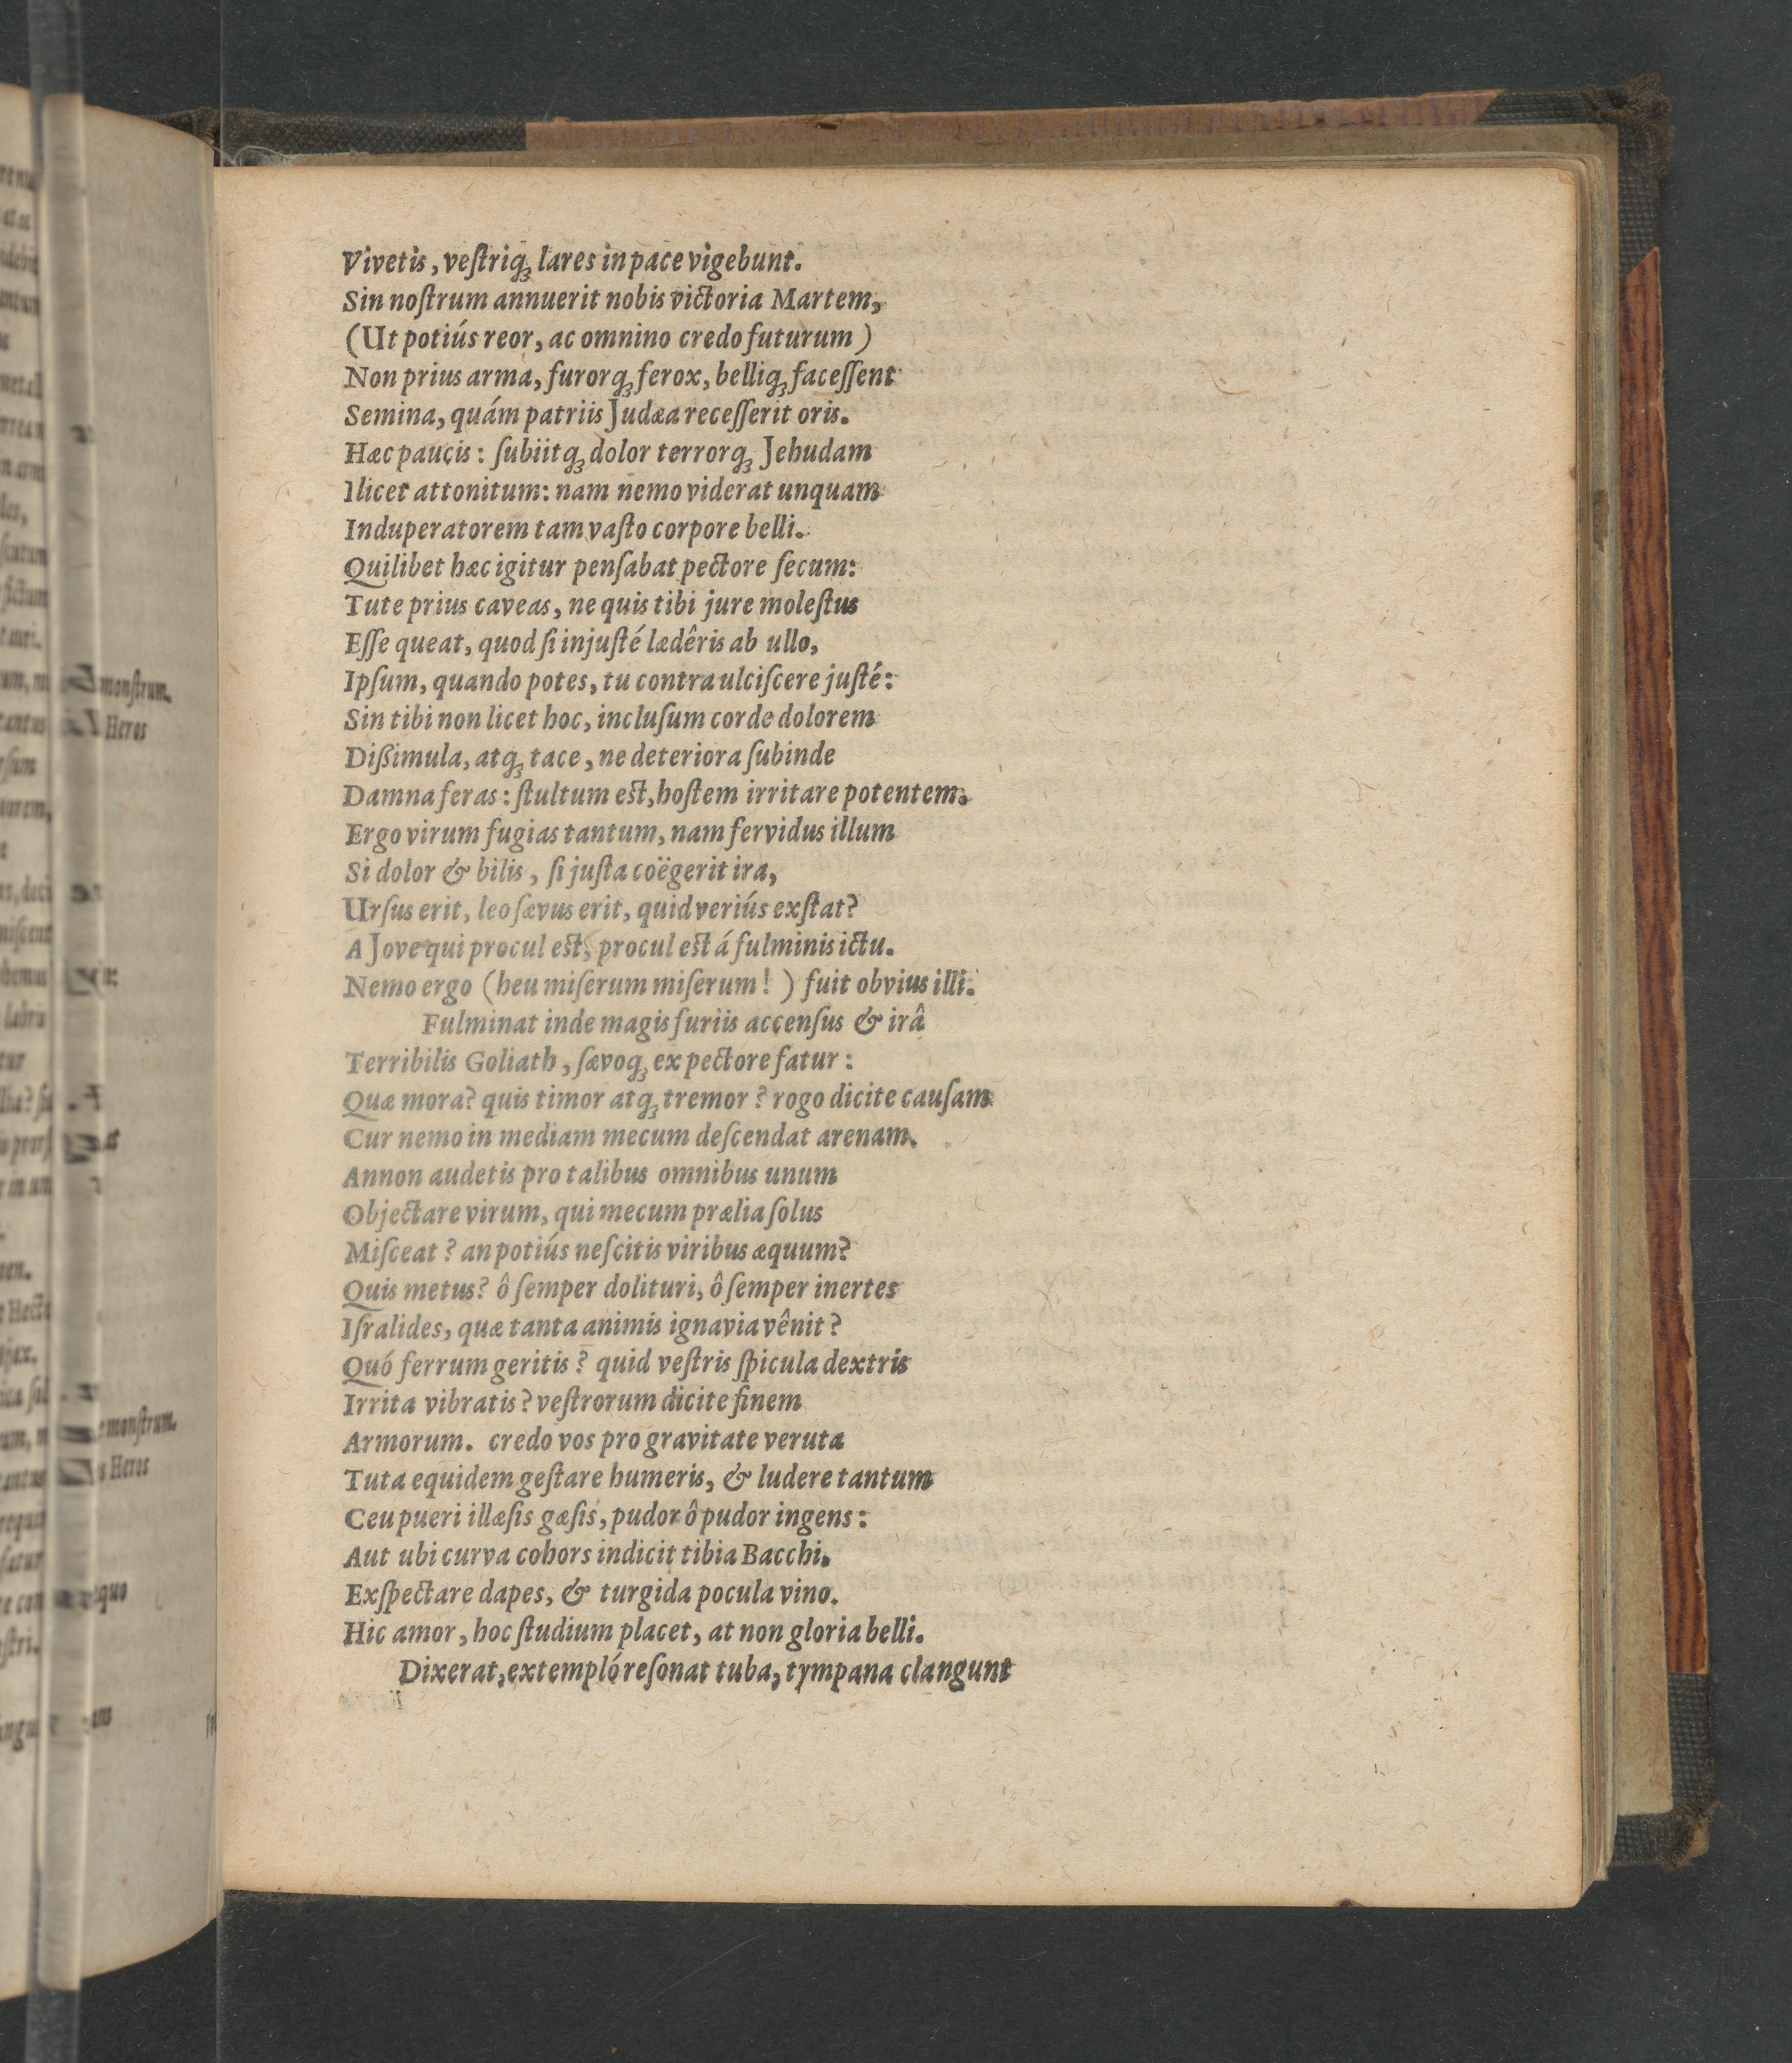 Vivetis, veſtriq́ꝫ lares in pace vigebunt.
Sin noſtrum annuerit nobis victoria Martem,
(Ut potiús reor, ac omnino credo futurum)
Non prius arma, furorq́ꝫ ferox, belliq́ꝫ faceſſent
Semina, quám patriis Judæa receſſerit oris.
Hæc paucis: ſubiitq́ꝫ dolor terrorq́ꝫ Jehudam
Ilicet attonitum: nam nemo viderat unquam
Induperatorem tam vaſto corpore belli.
Quilibet hæc igitur penſabat pectore ſecum:
Tute prius caveas, ne quis tibi jure moleſtus
Eſſe queat, quod ſi injuſté lædêris ab ullo,
Ipſum, quando potes, tu contra ulciſcere juſté:
Sin tibi non licet hoc, incluſum corde dolorem
Dißimula, atq́ꝫ tace, ne deteriora ſubinde
Damna feras: ſtultum est, hoſtem irritare potentem.
Ergo virum fugias tantum, nam fervidus illum
Si dolor & bilis, ſi juſta coëgerit ira,
Urſus erit, leo ſævus erit, quid veriús exſtat?
A Jove qui procul est, procul est á fulminis ictu.
Nemo ergo (heu miſerum miſerum!) fuit obvius illi.
Fulminat inde magis furiis accenſus & irâ
Terribilis Goliath, ſævoq́ꝫ ex pectore fatur:
Quæ mora? quis timor atq́ꝫ tremor? rogo dicite cauſam
Cur nemo in mediam mecum deſcendat arenam.
Annon audetis pro talibus omnibus unum
Objectare virum, qui mecum prælia ſolus
Miſceat? an potiús neſcitis viribus æquum?
Quis metus? ô ſemper dolituri, ô ſemper inertes
Iſralides, quæ tanta animis ignavia vênit?
Quó ferrum geritis? quid veſtris ſpicula dextris
Irrita vibratis? veſtrorum dicite finem
Armorum. credo vos pro gravitate veruta
Tuta equidem geſtare humeris, & ludere tantum
Ceu pueri illæſis gæſis, pudor ô pudor ingens:
Aut ubi curva cohors indicit tibia Bacchi.
Exſpectare dapes, & turgida pocula vino.
Hic amor, hoc ſtudium placet, at non gloria belli.
Dixerat, extempló reſonat tuba, tympana clangunt
monſtrum.
Heros
monſtrum.
s Heros